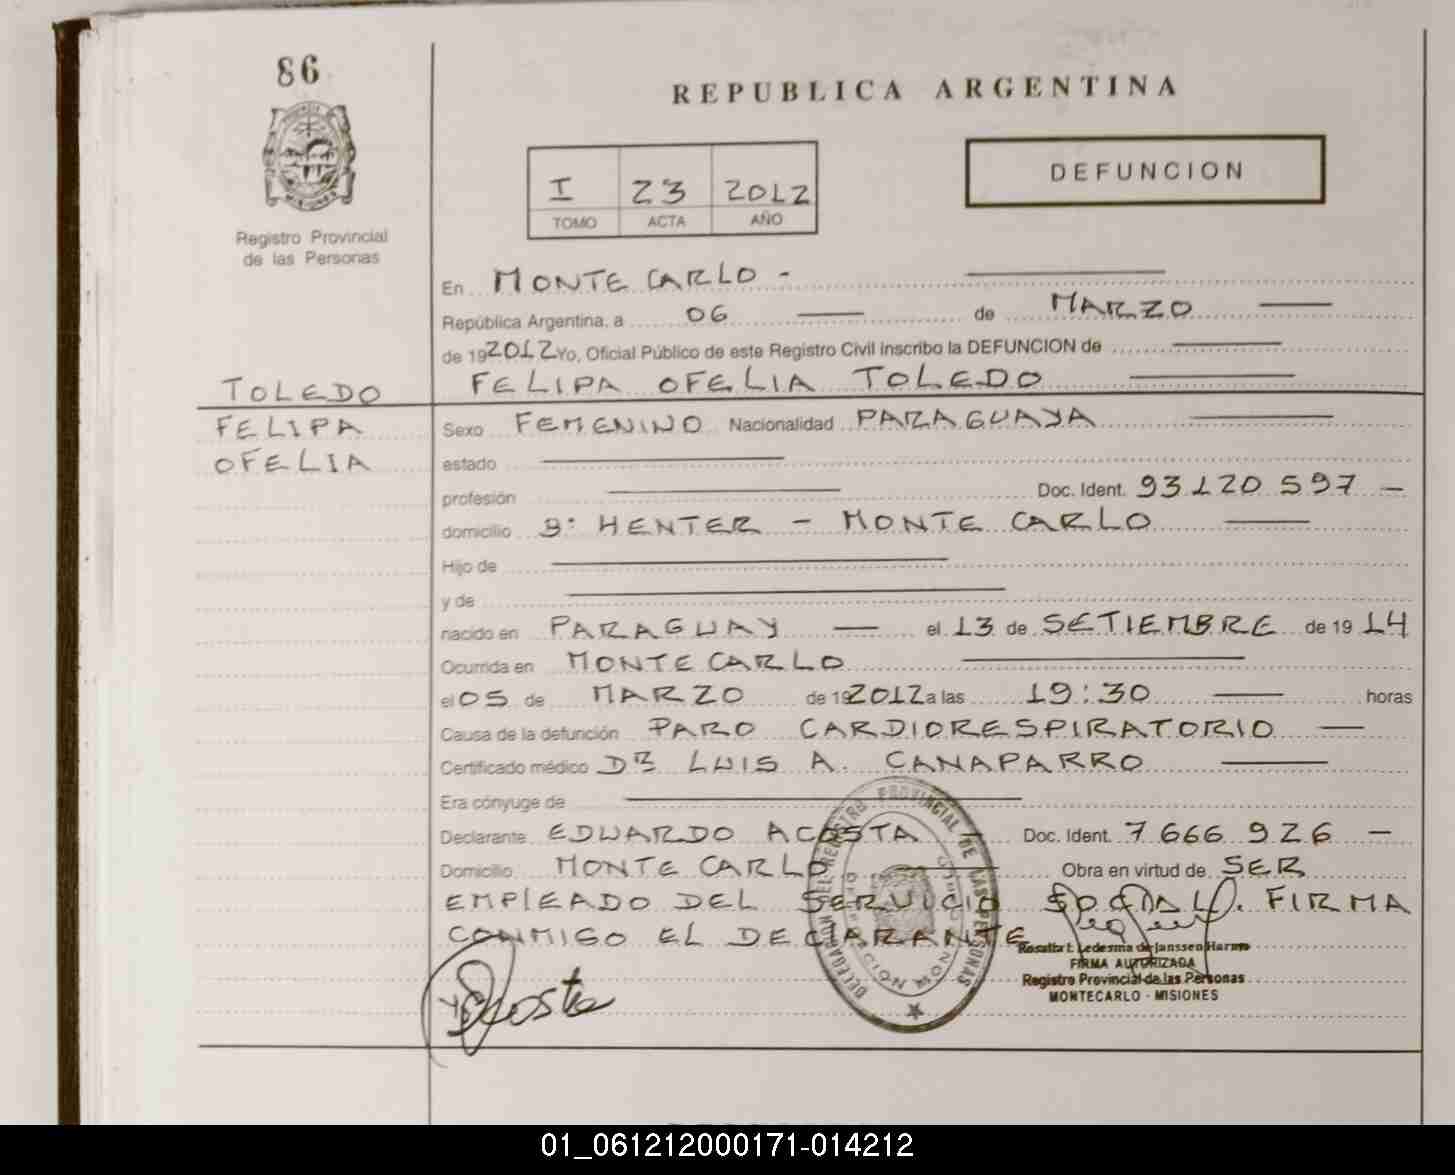 86
REPUBLICA ARGENTINA
I 23 2012
TOMO ACTA AÑO
DEFUNCION
MISIONES
Registro Provincial
de las Personas
En MONTE CARLO -
República Argentina, a 06 de MARZO
de 192012 Yo, Oficial Público de este Registro Civil inscribo la DEFUNCION de
TOLEDO FELIPA OFELIA TOLEDO
FELIPA
OFELIA
Sexo FEMENINO Nacionalidad PARAGUAYA
estado
profesión Doc. Ident. 93120597 -
domicilio Bº HENTER - MONTE CARLO
Hijo de
y de
nacido en PARAGUAY — el 13 de SETIEMBRE de 1914
Ocurrida en MONTE CARLO
el 05 de MARZO de 192012 a las 19:30 horas
Causa de la defunción PARO CARDIORESPIRATORIO
Certificado médico DR LUIS A. CANAPARRO
Era cónyuge de
Declarante EDUARDO ACOSTA - Doc. Ident. 7666926 -
Domicilio MONTE CARLO Obra en virtud de SER
EMPlEADO DEL SERVICIO SOCIAL. FIRMA
CONMIGO EL DEClARANTE
Acosta
DELEGACION DEL REGISTRO PROVINCIAL DE LAS PERSONAS
Rosalba I. Ledesma de Janssen Harms
FIRMA AUTORIZADA
Registro Provincial de las Personas
MONTECARLO - MISIONES
01_061212000171-014212